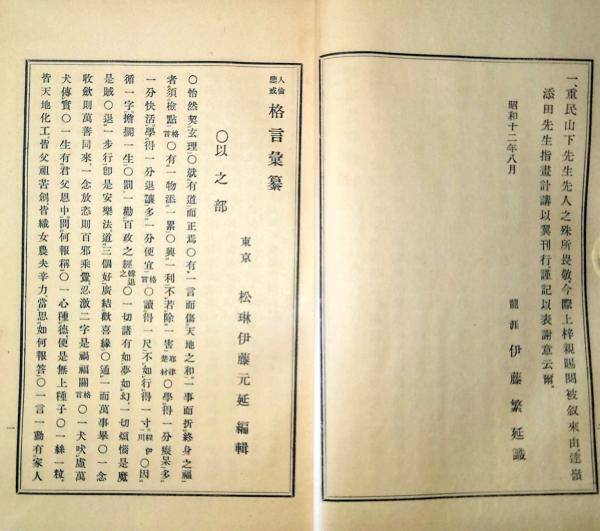 一、重民山下先生先人之殊所畏敬、今際上梓親賜閲被叙來由、達嶺
添田先生指畫計講以翼刊行、謹記以表謝意云爾、
昭和十二年八月
龍涯 伊藤繁延識
人倫鑑戒 格言彙纂
東京 松琳伊藤元延編輯
〇以之部
〇怡然契玄理〇就有道而正焉〇有一言而傷天地之和、一事而折終身之福、
者須檢點格言〇有一物添一累〇興一利不若除一害耶律楚材〇學得一分癡呆多、
一分快活學得一分退讓多、一分便宜格言〇讀得一尺、不如行得一寸程伊川〇因
循一字擔擱一生〇罰一勸百政之經韓退之〇一切諸有如夢如幻、一切煩惱是魔
是賊〇退一步行即是安樂法道三個好廣結歡喜緣〇通一而萬事畢〇一念
收斂則萬善同來、一念放恣則百邪乘釁忍激二字是禍福關格言〇一犬吠虛萬
犬傳實〇一生有君父恩中間何報稱〇一心種德便是無上種子〇一絲一粒、
皆天地化工皆父祖苦創皆織女農夫辛力當思如何報答〇一言一動有家人
一